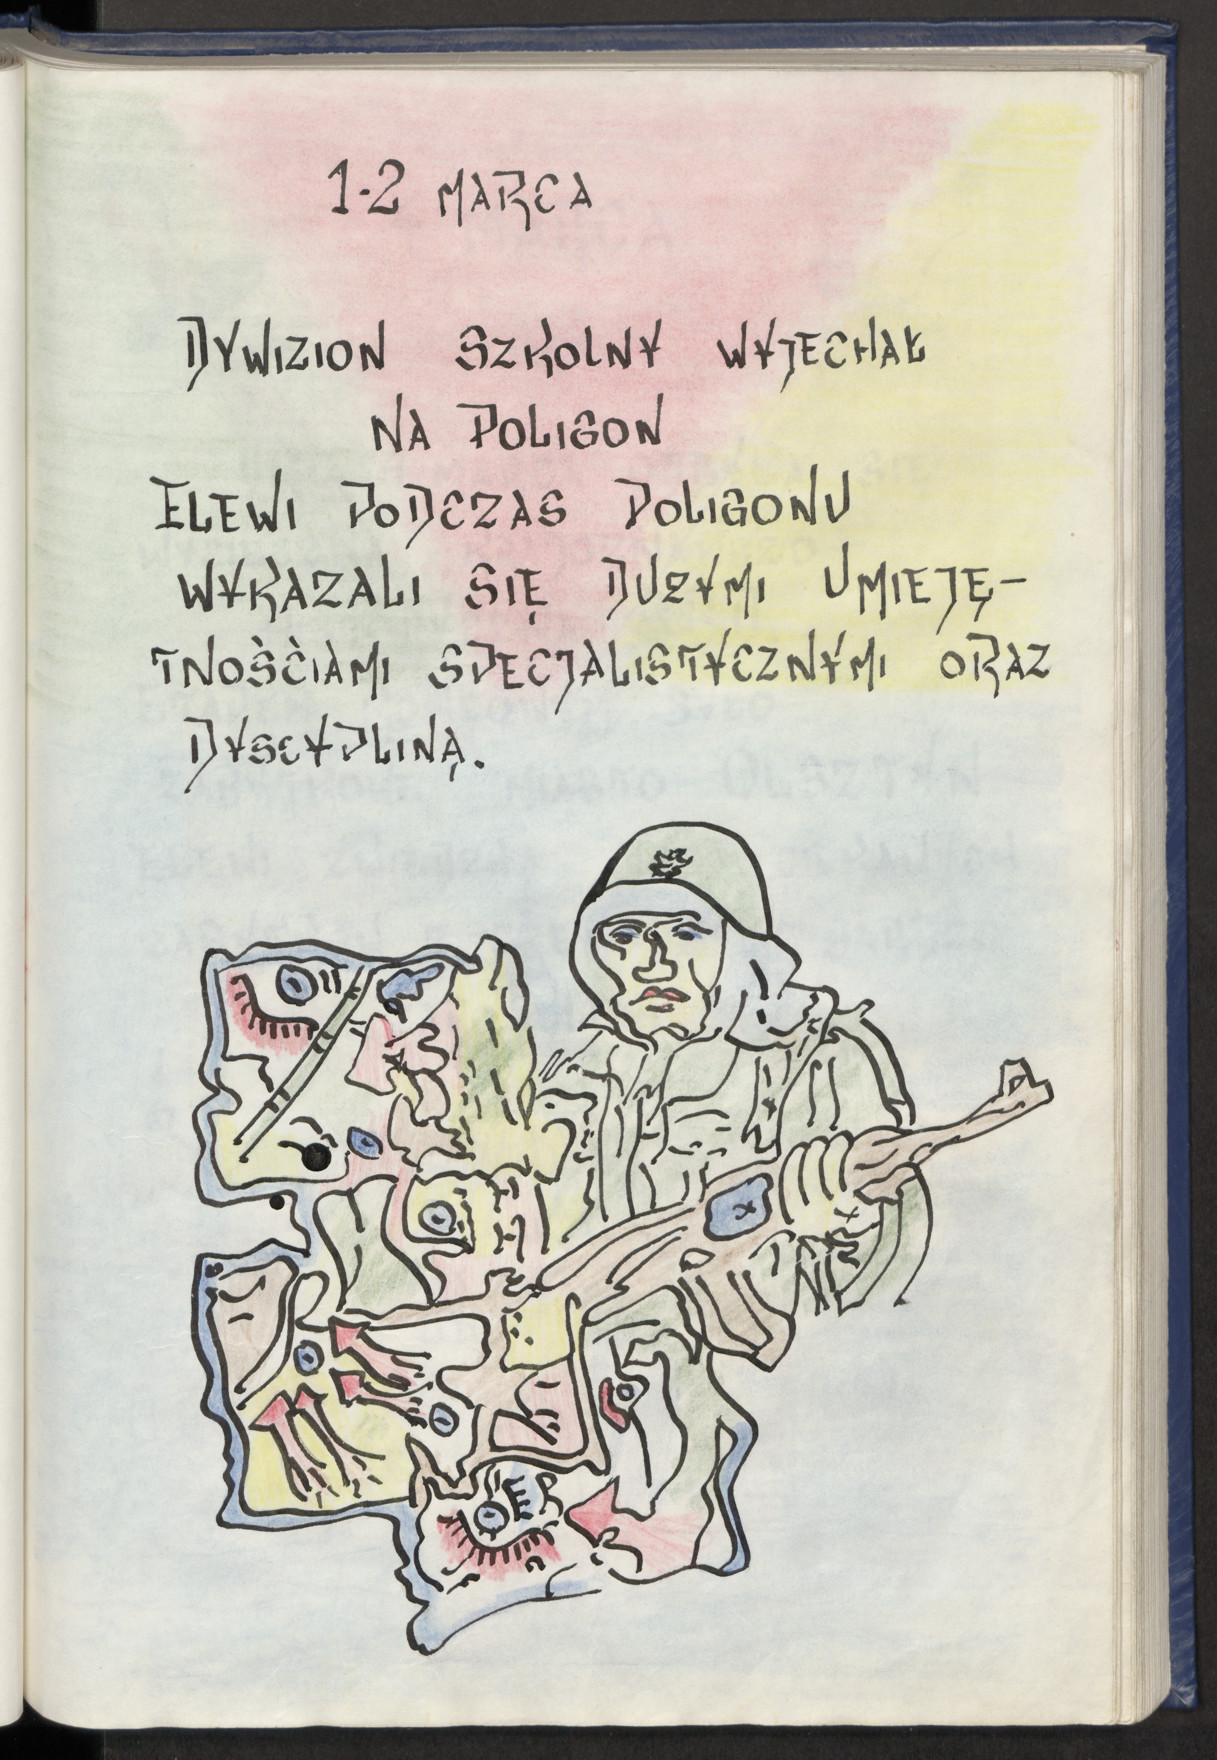 1-2 MARCA
DYWIZION SZKOLNY WYJECHAŁ
NA POLIGON
ELEWI PODCZAS POLIGONU
WYKAZALI SIĘ DUŻYMI UMIEJĘ-
TNOŚCIAMI SPECJALISTYCZNYMI ORAZ
DYSCYPLINĄ.